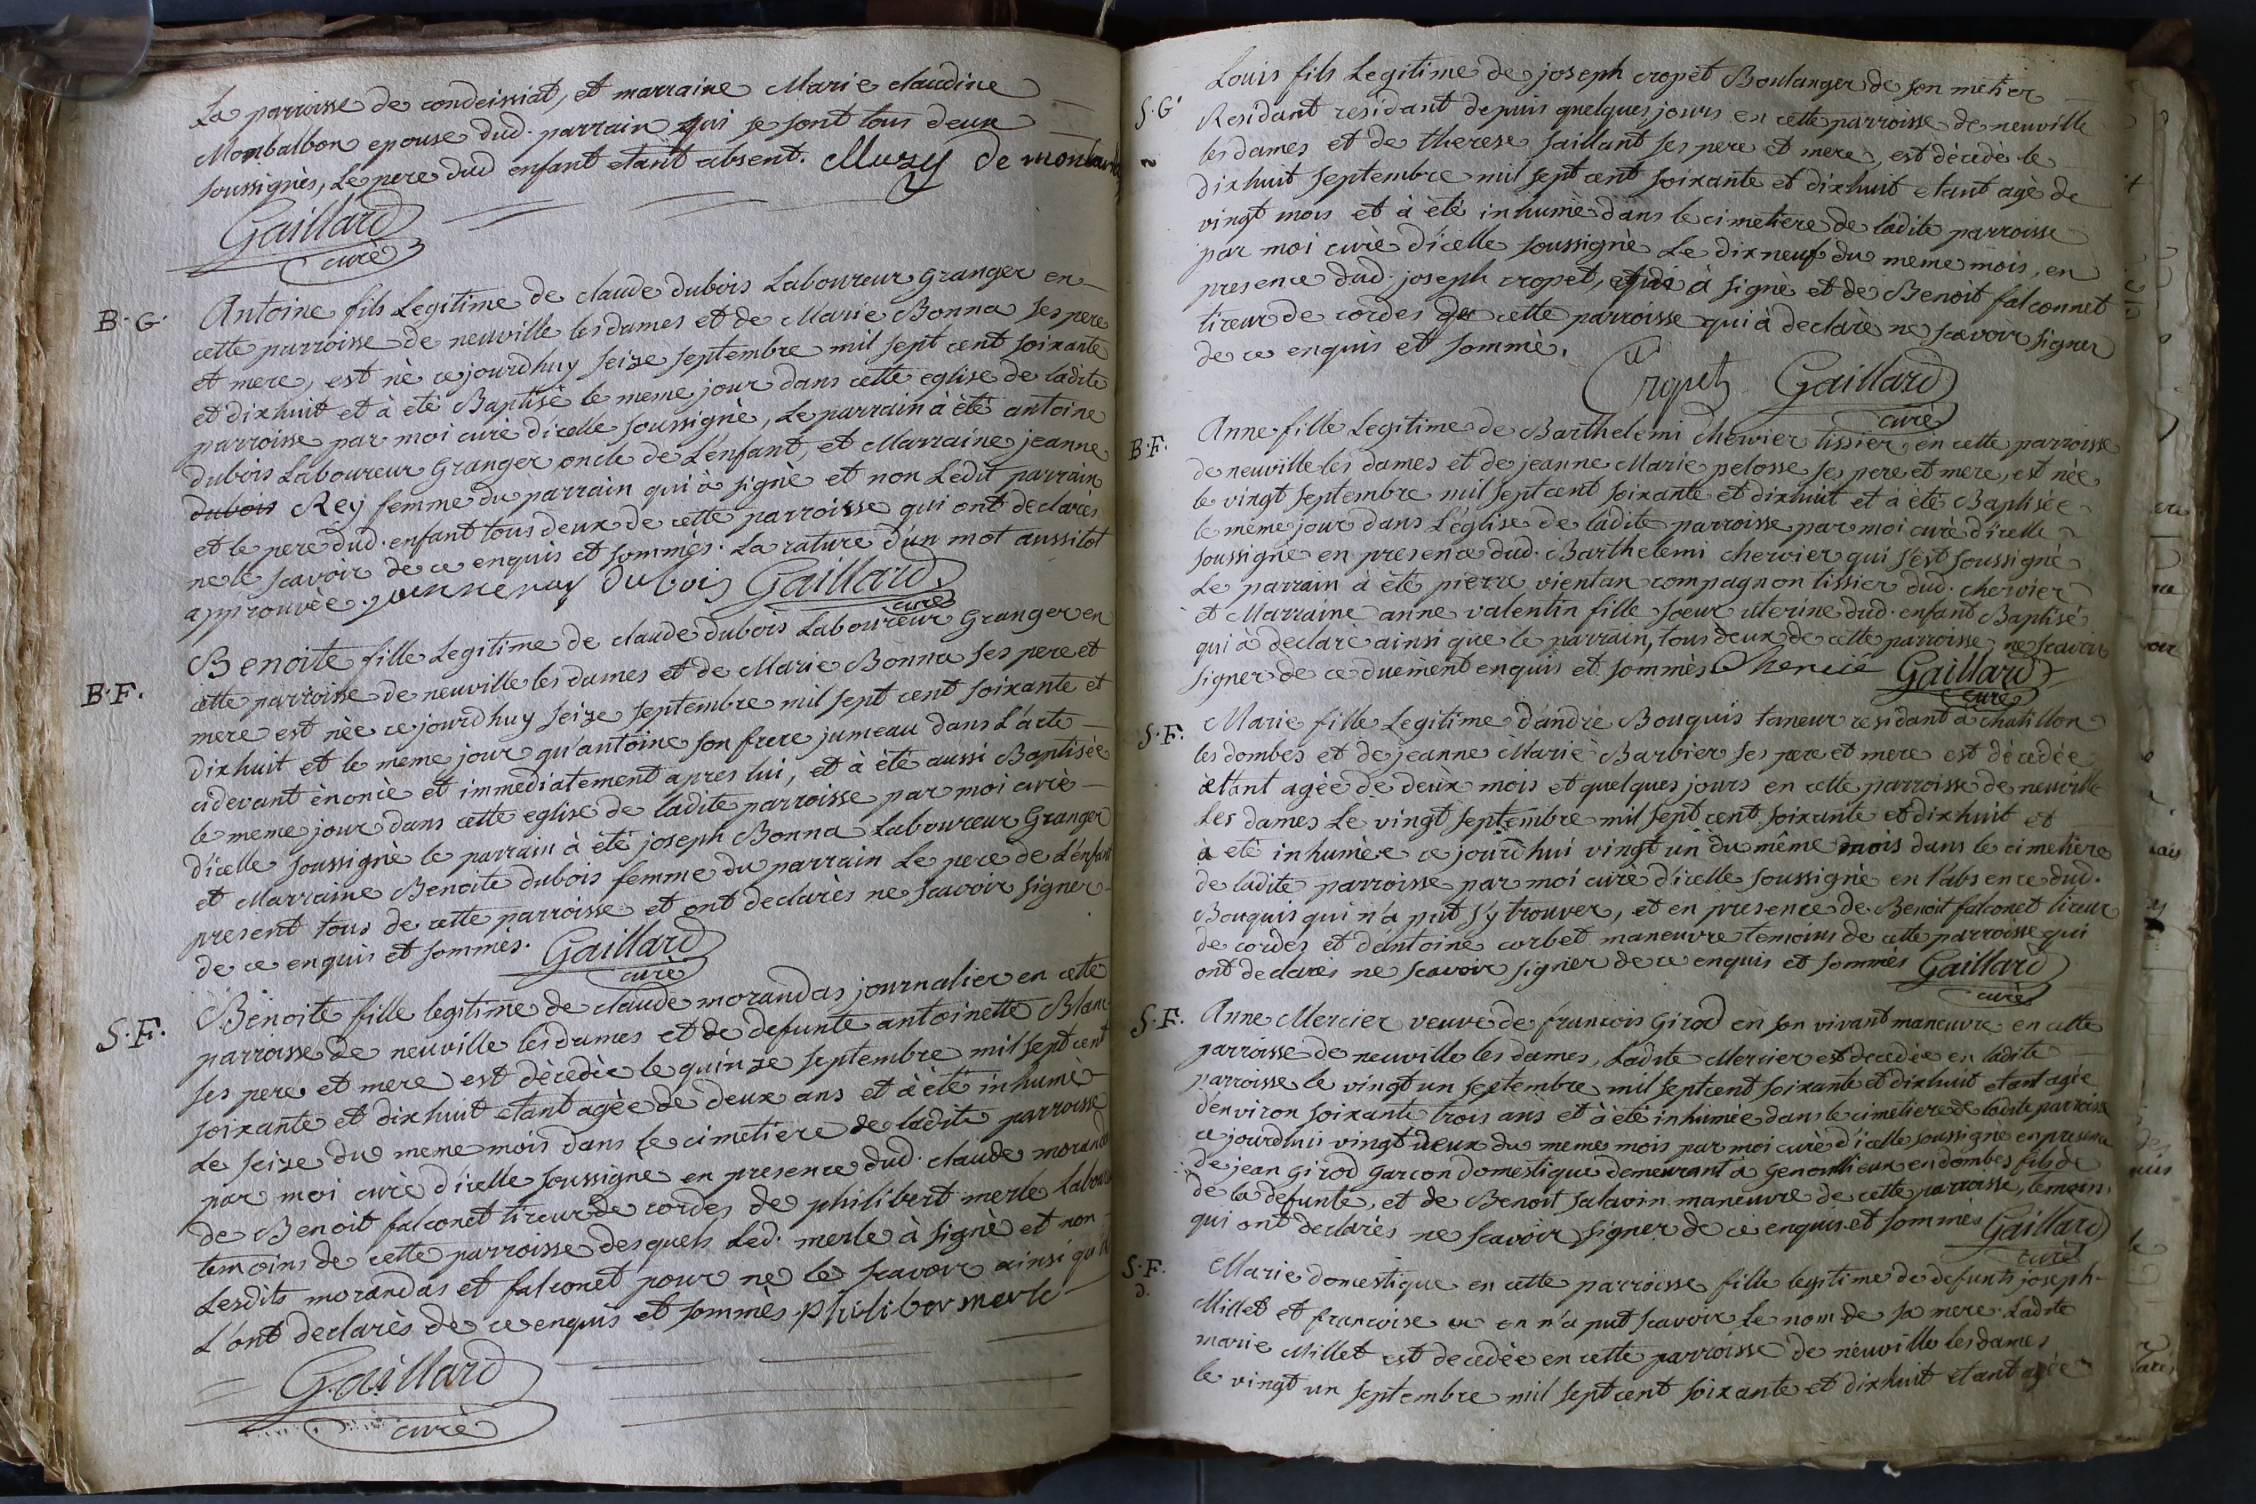 La parroisse de condeissiat, et marraine Marie claudine
Monbalbon epouse dud. parrain qui se sont tous deux
soussignès, Le pere dud enfant etant absent. Muzy de
Gaillard
curè
B. G. Antoine fils Legitime de claude dubois Laboureur Granger en
cette parroisse de neuville les dames et de Marie Bonna ses pere
et mere, est nè cejourdhuy seize septembre mil sept cent soixante
et dixhuit et à etè Baptisè le meme jour dans cette eglise de ladite
parroisse par moi curè dicelle soussignè, Le parrain à ètè antoine
dubois Laboureur Granger oncle de L'enfant, et Marraine jeanne
dubois Rey femme du parrain qui à signè et non Ledit parrain
et le pere dud. enfant tous deux de cette parroisse qui ont declarès
ne le scavoir de ce enquis et sommès. La rature d'un mot aussitot
approuvèe. jeanne ray dubois Gaillard
curè
B. F. Benoite fille Legitime de claude dubois Laboureur Granger en
cette parroisse de neuville les dames et de Marie Bonna ses pere et
mere est nèe cejourdhuy seize septembre mil sept cent soixante et
dixhuit et le meme jour qu'antoine son frere jumeau dans L'acte
cidevant ènoncè et immediatement apres lui, et à ètè aussi Baptisèe
le meme jour dans cette eglise de ladite parroisse par moi curè
dicelle soussignè le parrain à ètè joseph Bonna Laboureur Granger
et Marraine Benoite dubois femme du parrain Le pere de L'enfant
present tous de cette parroisse et ont declarès ne scavoir signer
de ce enquis et sommès. Gaillard
curè
S. F. Benoite fille legitime de claude morandas journalier en cette
parroisse de neuville les dames et de defunte antoinette Blanc
ses pere et mere est dècèdèe le quinze septembre mil sept cent
soixante et dixhuit etant agèe de deux ans et à ètè inhumè
Le seize du meme mois dans le cimetiere de ladite parroisse
par moi curè d'icelle soussigne en presence dud. claude morandas
de Benoit falconet tireur de cordes de philibert merle Laboureur
temoins de cette parroisse desquels Led. merle à signè et non
Lesdits morandas et falconet pour ne le scavoir ainsi qu'il
L'ont declarès de ce enquis et sommès. philiber merle
Gaillard
curè
S. G. Louis fils Legitime de joseph cropet Boulanger de son mètier
Residant residant depuis quelques jours en cette parroisse de neuville
les dames et de therese saillant ses pere et mere, est dècèdè le
dixhuit septembre mil sept cent soixante et dixhuit etant agè de
vingt mois et à ètè inhumè dans le cimetiere de ladite parroisse
par moi curè d'icelle soussignè Le dixneuf du meme mois, en
presence dud. joseph cropet, qui à signè et de Benoit falconnet
tireur de cordes de cette parroisse qui à declarè ne scavoir signer
de ce enquis et sommè.
Cropet Gaillard
curè
B. F. Anne fille Legitime de Barthelemi chervier tissier en cette parroisse
de neuville les dames et de jeanne Marie pelosse ses pere et mere, est nèe
le vingt septembre mil sept cent soixante et dixhuit et à ètè Baptisèe
le meme jour dans L'èglise de ladite parroisse par moi curè d'icelle
soussigne en presence dud. Barthelemi chervier qui s'est soussignè
Le parrain à ètè pierre vientan compagnon tissier dud. chervier
et Marraine anne valentin fille soeur uterine dud. enfant Baptisè
qui à declarè ainsi que le parrain, tous deux de cette parroisse, ne scavoir
signer de ce duement enquis et sommès Chervié Gaillard
curè
S. F. Marie fille Legitime d'andrè Bouquis taneur residant à chatillon
les dombes et de jeanne Marie Barbier ses pere et mere est dècedèe
ètant agèe de deux mois et quelques jours en cette parroisse de neuville
Les dames Le vingt septembre mil sept cent soixante et dixhuit et
a eté inhumèe ce jourd'hui vingt un du même mois dans le cimetière
de ladite parroisse par moi curè d'icelle soussigne en l'absence dud.
Bouquis qui n'a put s'y trouver, et en presence de Benoit falconet tireur
de cordes et d'antoine corbet maneuvre temoins de cette parroisse qui
ont declarès ne scavoir signer de ce enquis et sommès Gaillard
curè
S. F. Anne Mercier veuve de francois Girod en son vivant maneuvre en cette
parroisse de neuville les dames, Ladite Mercier est decedèe en ladite
parroisse le vingt un septembre mil sept cent soixante et dixhuit etant agèe
d'environ soixante trois ans et à ètè inhumèe dans le cimetiere de ladite parroisse
ce jourdhui vingt deux du meme mois par moi curè d'icelle soussignè en presence
de jean Girod Garcon domestique demeurant à Genoullieux en dombes fils de
de la defunte, et de Benoit salavin maneuvre de cette parroisse, temoins
qui ont declarès ne scavoir signer de ce enquis et sommès Gaillard
curè
S. F. Marie domestique en cette parroisse fille legitime de defunts joseph
Millet et francoise on n'a put scavoir Le nom de sa mere. Ladite
marie Millet est decedèe en cette parroisse de neuville les dames
le vingt un septembre mil sept cent soixante et dixhuit etant agèe